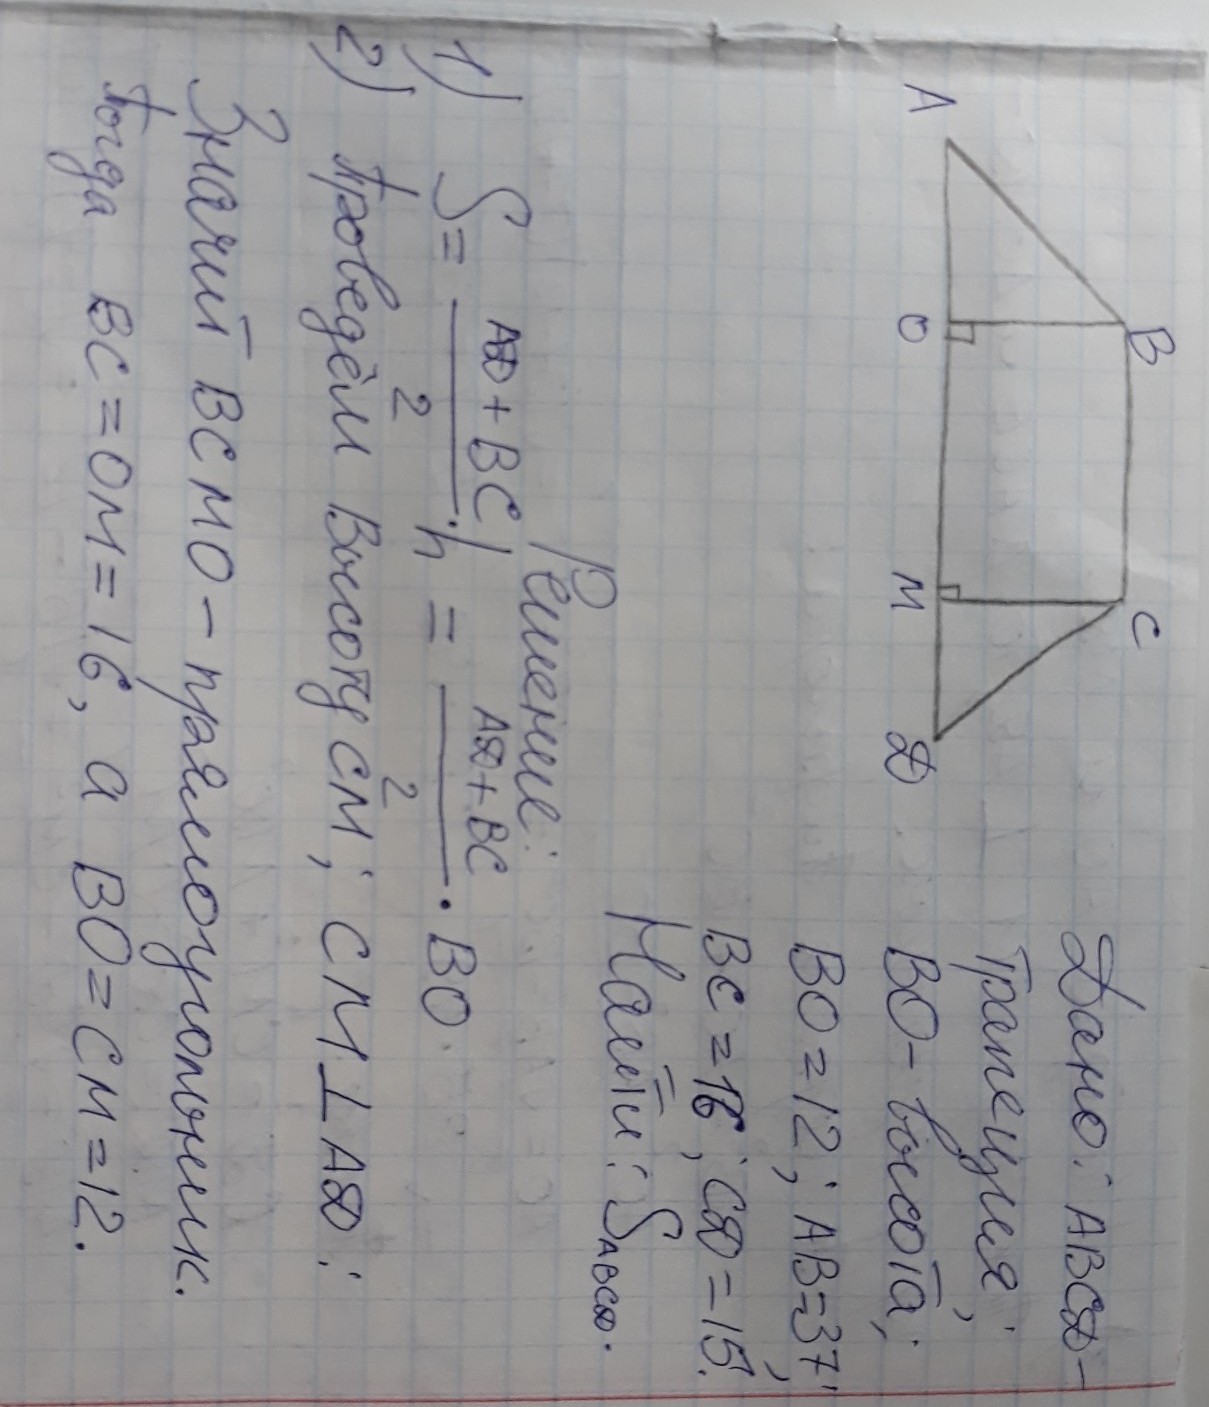 A
B
C
O
M
D
Дано: ABCD-
трапеция;
BO-высота;
BO=12; AB=37;
BC=16; CD=15.
Найти: S ABCD.
Решение:
1) S= AD+BC/2 · h = AD+BC/2 · BO
2) Проведём высоту CM; CM⊥AD:
Значит BCMO-прямоугольник.
Тогда BC=OM=16, а BO=CM=12.